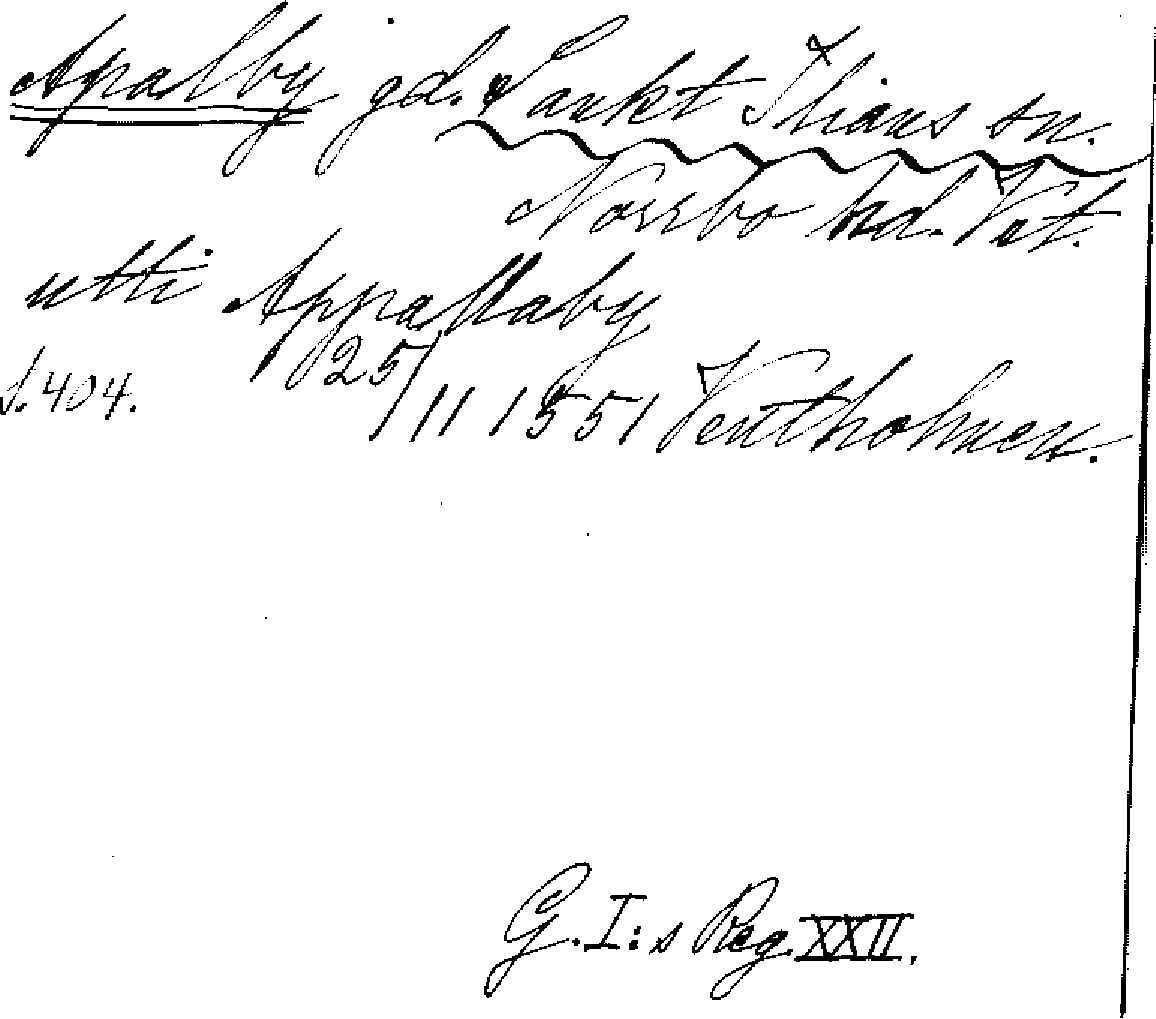 Apalby gd. Sankt Ilians sn.
Norrbo hd. Vet.
utti Appallaby
s. 404. 25/11 1551 Ventholmen.
G. I:s Reg. XXII.